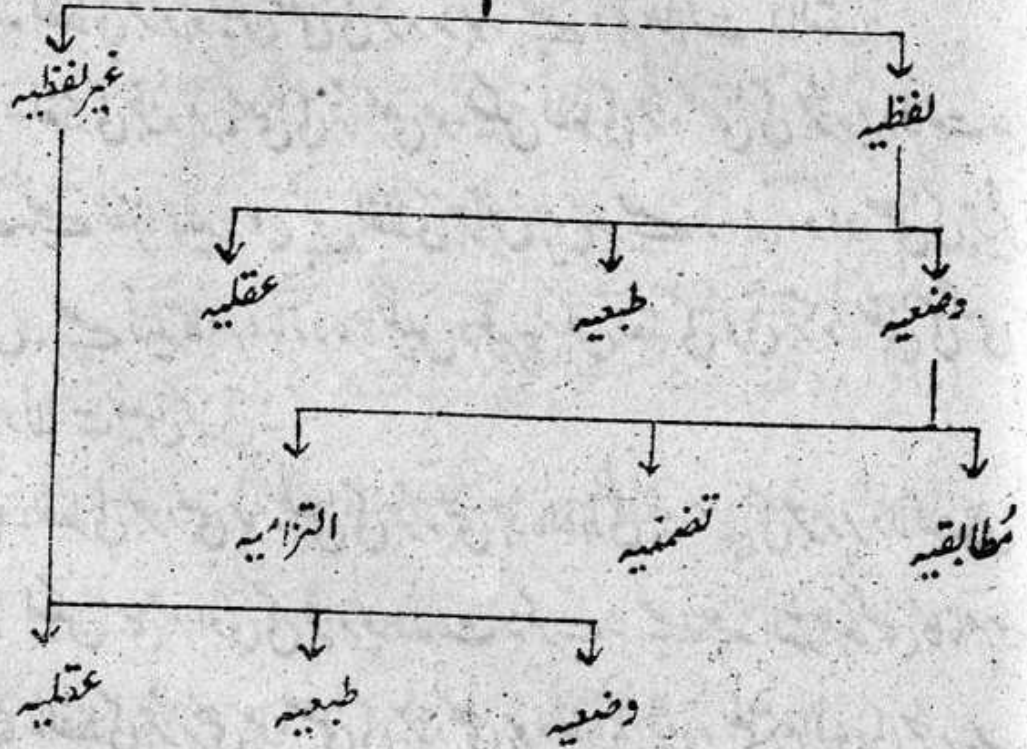 لفظیہ
غیر لفظیہ
وضعیہ طبعیہ عقلیہ
مُطابقیہ تضمنیہ التزامیہ
وضعیہ طبعیہ عقلیہ